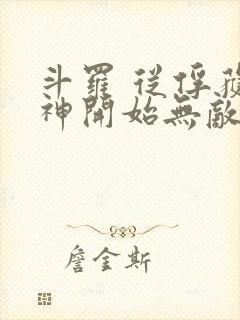 斗羅 從俘獲
神開始無敵
詹金斯